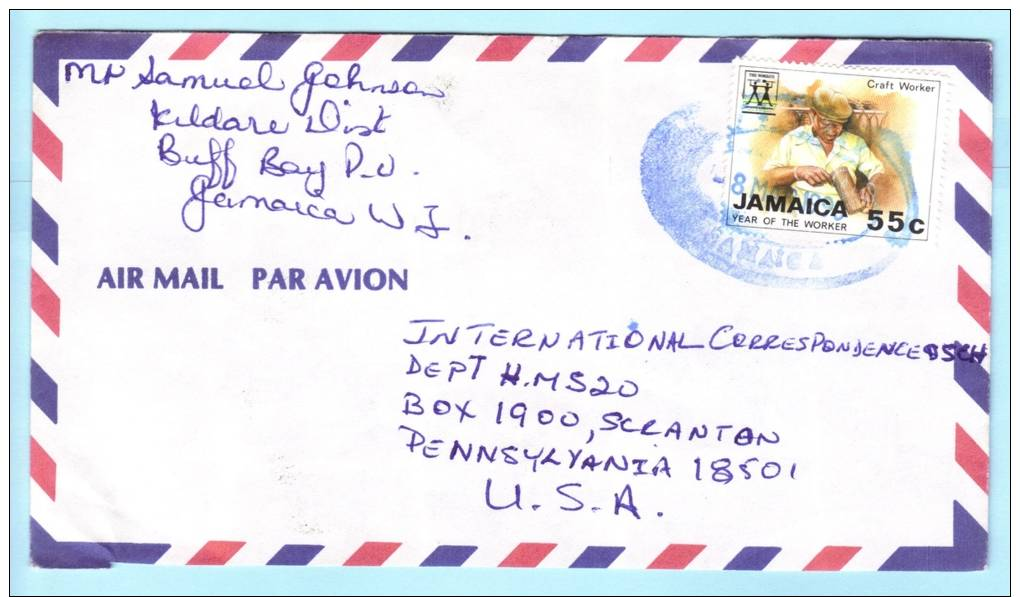 Mr Samuel Johnson
Kildare Dist
Buff Bay P.O.
Jamaica W I.
AIR MAIL PAR AVION
INTERNATIONAL CORRESPONDENCE SCH
DEPT H.MS20
BOX 1900, SCRANTON
PENNSYLVANIA 18501
U.S.A.
Craft Worker
JAMAICA 55c
YEAR OF THE WORKER
8